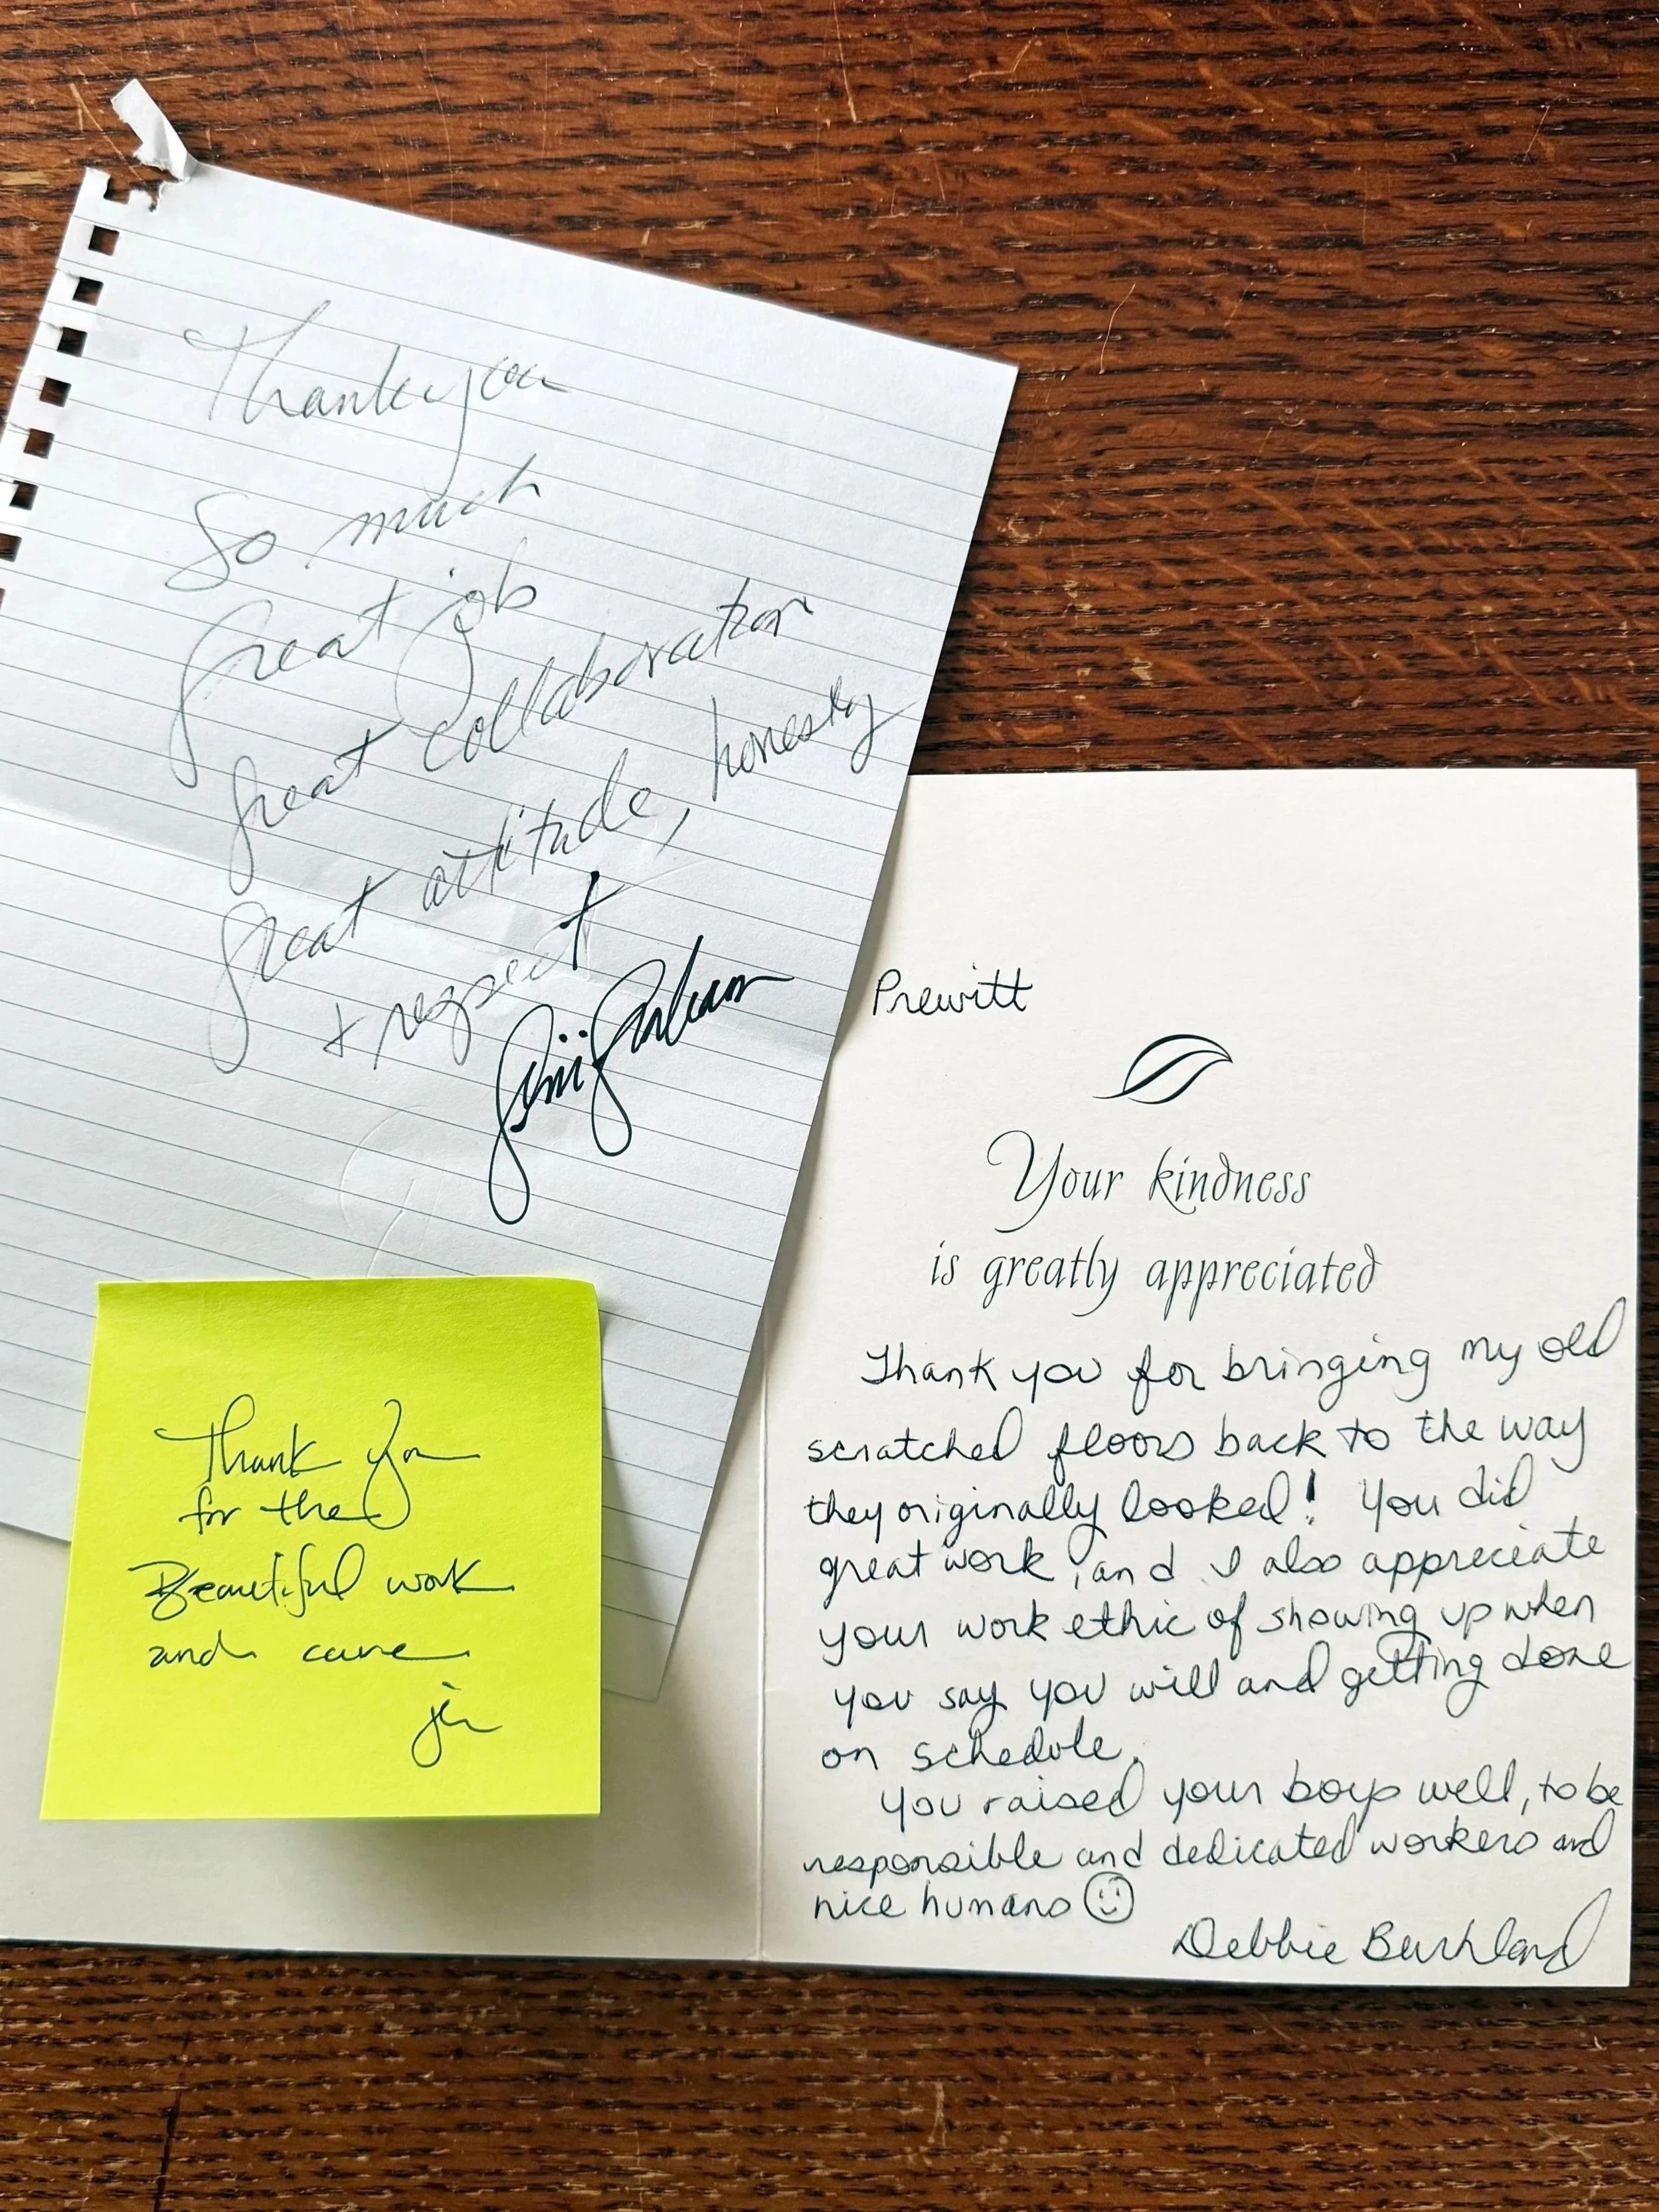 Thank you
So much
great job
great collaboration
great attitude, honesty
+ respect
Thank you
for the
Beautiful work
and care
Prewitt
Your kindness
is greatly appreciated
Thank you for bringing my old
scratched floors back to the way
they originally looked! You did
great work, and I also appreciate
your work ethic of showing up when
you say you will and getting done
on schedule.
You raised your boys well, to be
responsible and dedicated workers and
nice humans ☺
Debbie